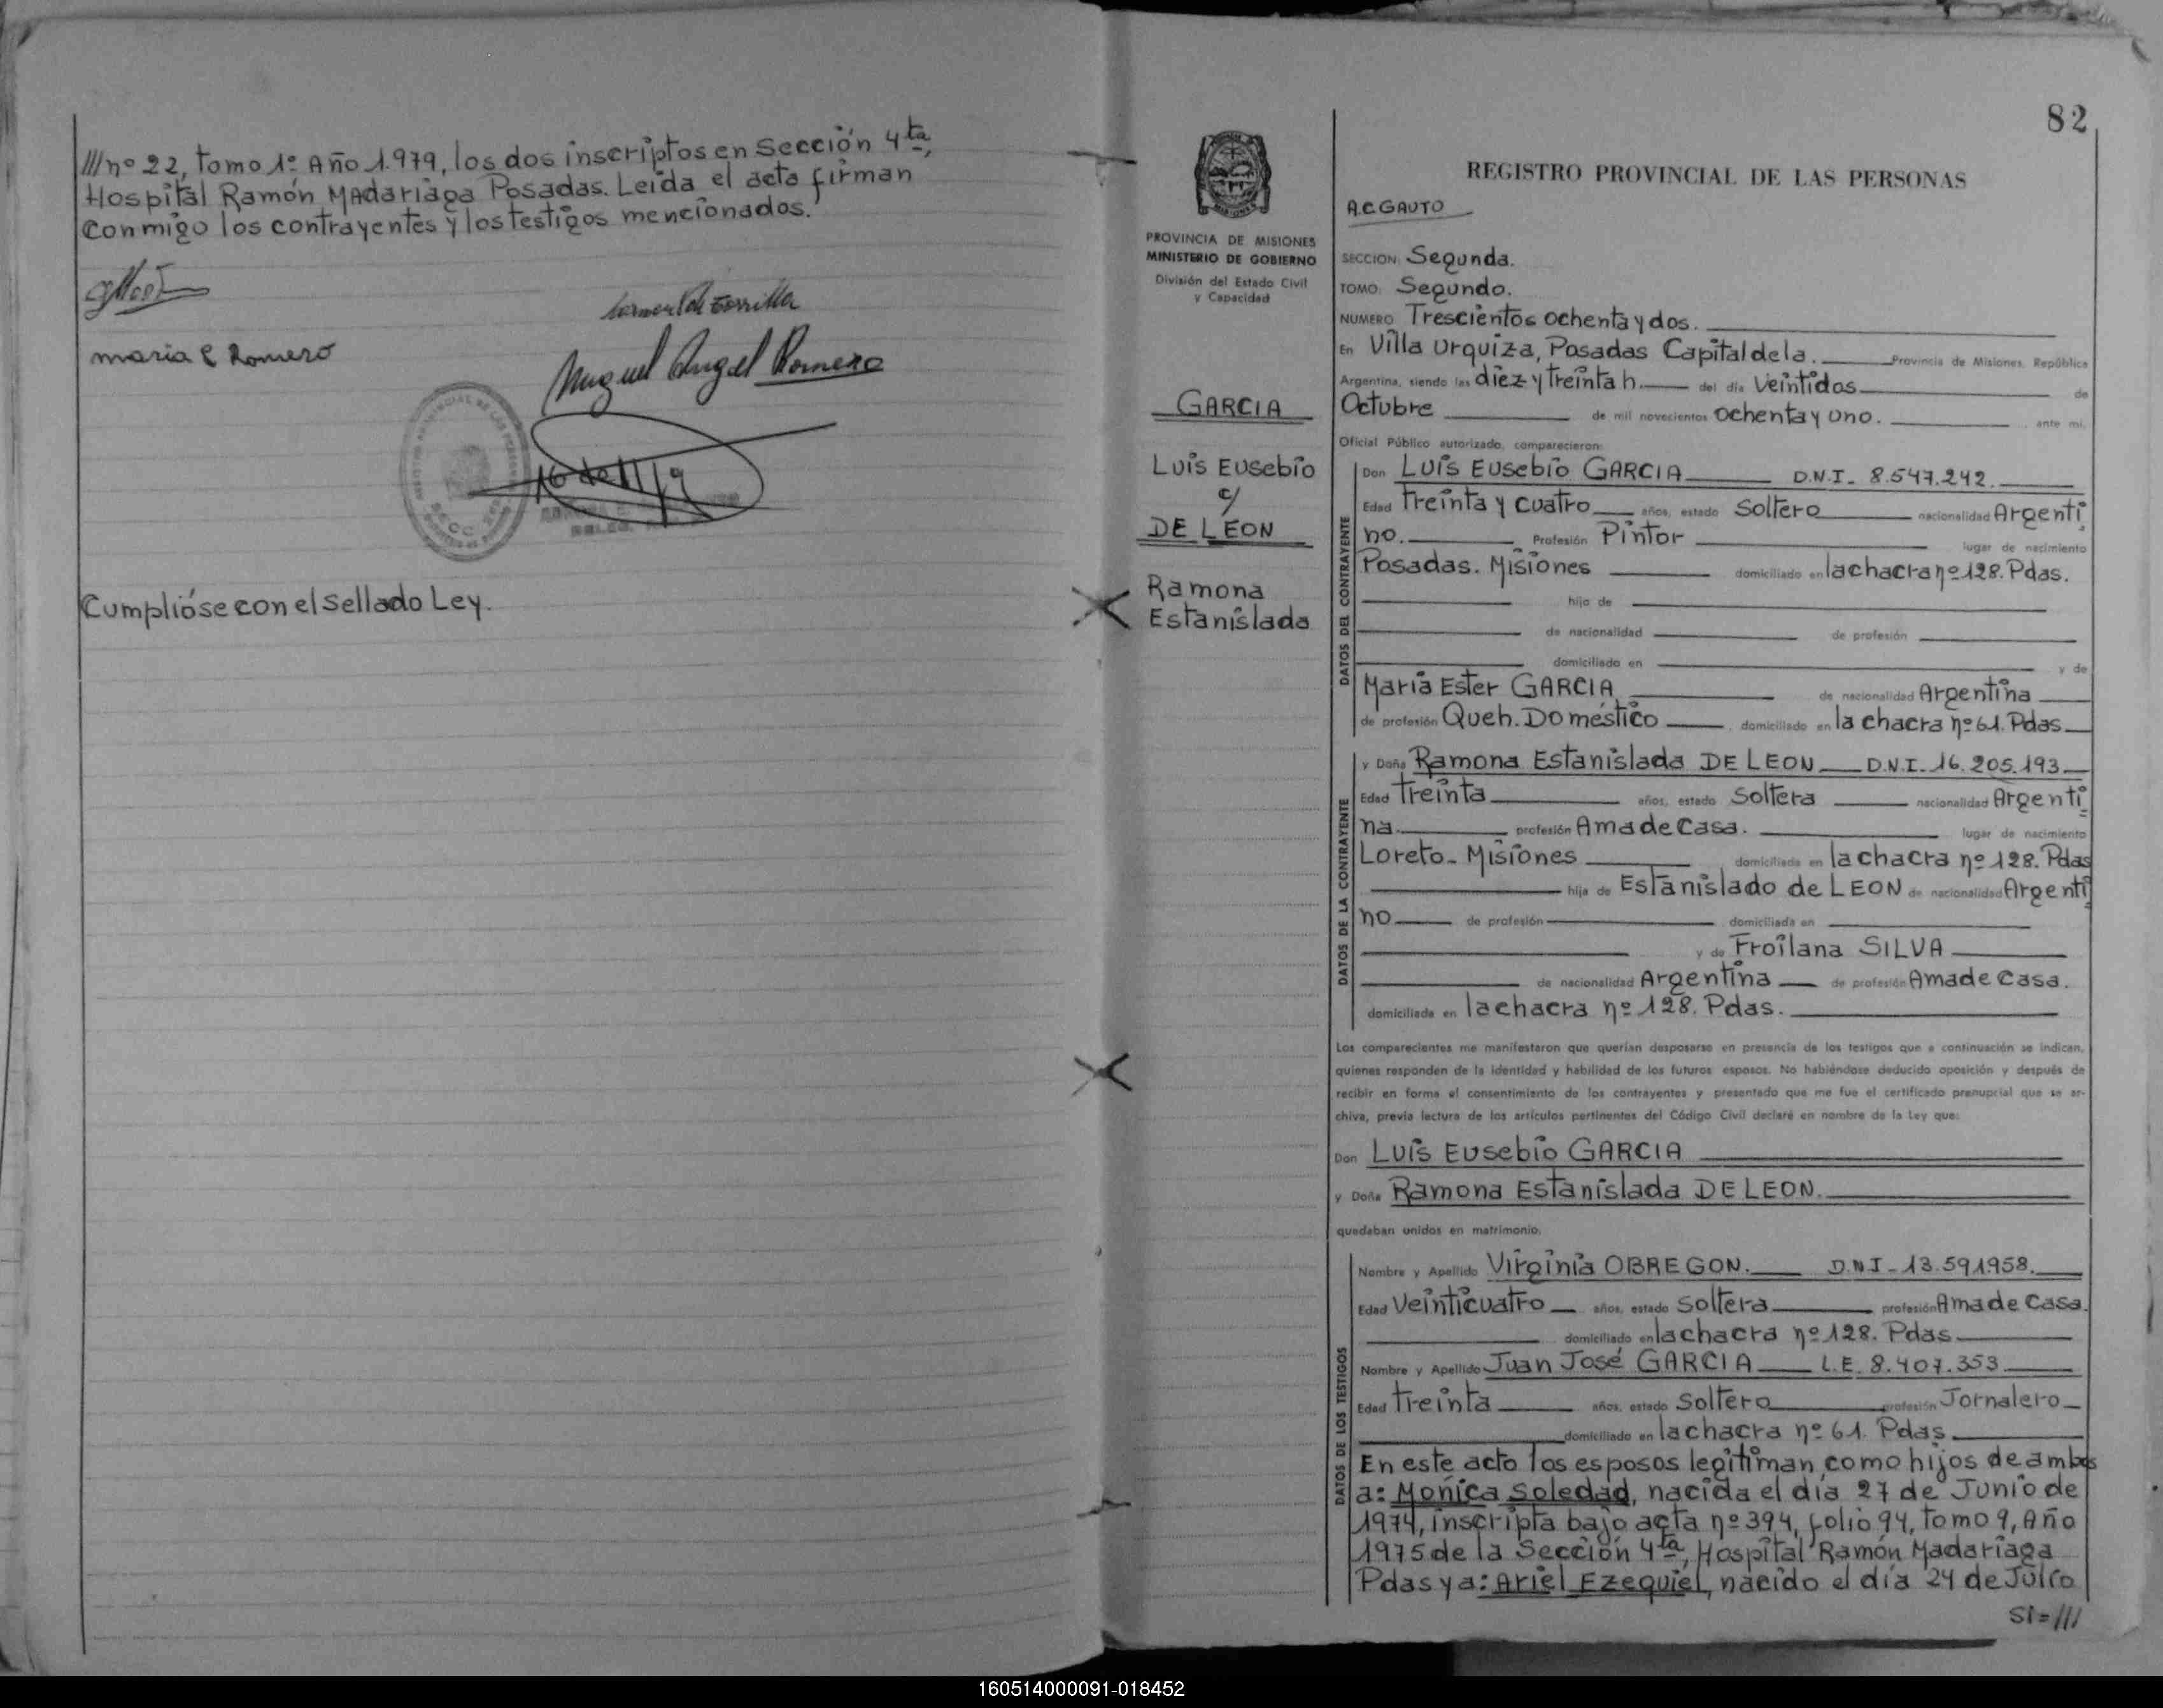 ///nº 22, tomo 1º Año 1.979, los dos inscriptos en Sección 4ta,
Hospital Ramón MAdariaga Posadas. Leída el acta firman
conmigo los contrayentes y los testigos mencionados.
maria E Romero
Miguel Angel Romero
Cumplióse con el Sellado Ley.
82
PROVINCIA DE MISIONES
MINISTERIO DE GOBIERNO
División del Estado Civil
y Capacidad
GARCIA
Luis Eusebio
c/
DE LEON
Ramona
Estanislada
REGISTRO PROVINCIAL DE LAS PERSONAS
A.C GAUTO
SECCION: Segunda.
TOMO: Segundo.
NUMERO Trescientos ochenta y dos.
En Villa Urquiza, Posadas Capital de la. Provincia de Misiones, República
Argentina, siendo las diez y treinta h. del día Veintidos de
Octubre de mil novecientos ochenta y uno. ante mi,
Oficial Público autorizado, comparecieron:
DATOS DEL CONTRAYENTE
Don LUIS EUSebio GARCIA D.N.I. 8.547.242.
Edad treinta y cuatro años, estado Soltero nacionalidad Argenti
no. Profesión Pintor lugar de nacimiento
Posadas. Misiones domiciliado en la chacra nº 128. Pdas.
hijo de
de nacionalidad de profesión
domiciliado en y de
María Ester GARCIA de nacionalidad Argentina
de profesión Queh. Doméstico domiciliado en la chacra nº 61. Pdas
DATOS DE LA CONTRAYENTE
y Doña Ramona Estanislada DE LEON D.N.I. 16.205.193
Edad treinta años, estado Soltera nacionalidad Argenti
na. profesión Ama de Casa. lugar de nacimiento
Loreto - Misiones domiciliada en la chacra nº 128. Pdas
hija de Estanislado de LEON de nacionalidad Argenti
no de profesión domiciliada en
y de Froilana SILVA
de nacionalidad Argentina de profesión Ama de Casa.
domiciliada en la chacra nº 128. Pdas.
Los comparecientes me manifestaron que querían desposarse en presencia de los testigos que a continuación se indican,
quienes responden de la identidad y habilidad de los futuros esposos. No habiéndose deducido oposición y después de
recibir en forma el consentimiento de los contrayentes y presentado que me fue el certificado prenupcial que se ar-
chiva, previa lectura de los artículos pertinentes del Código Civil declaré en nombre de la Ley que:
Don LUIS EUSebio GARCIA
y Doña Ramona Estanislada DE LEON.
quedaban unidos en matrimonio.
DATOS DE LOS TESTIGOS
Nombre y Apellido Virginia OBREGON. D.N.I - 13.591958.
Edad Veinticuatro años, estado Soltera profesión Ama de Casa.
domiciliado en la chacra nº 128. Pdas
Nombre y Apellido Juan José GARCIA L.E. 8.407.353
Edad treinta años, estado Soltero profesión Jornalero
domiciliado en la chacra nº 61. Pdas
En este acto los esposos legitiman como hijos de ambos
a: Mónica Soledad, nacida el día 27 de Junio de
1974, inscripta bajo acta nº 394, folio 94, tomo 9, Año
1975 de la Sección 4ta, Hospital Ramón Madariaga
Pdas y a: Ariel Ezequiel, nacido el día 24 de Julio
Si=///
160514000091-018452